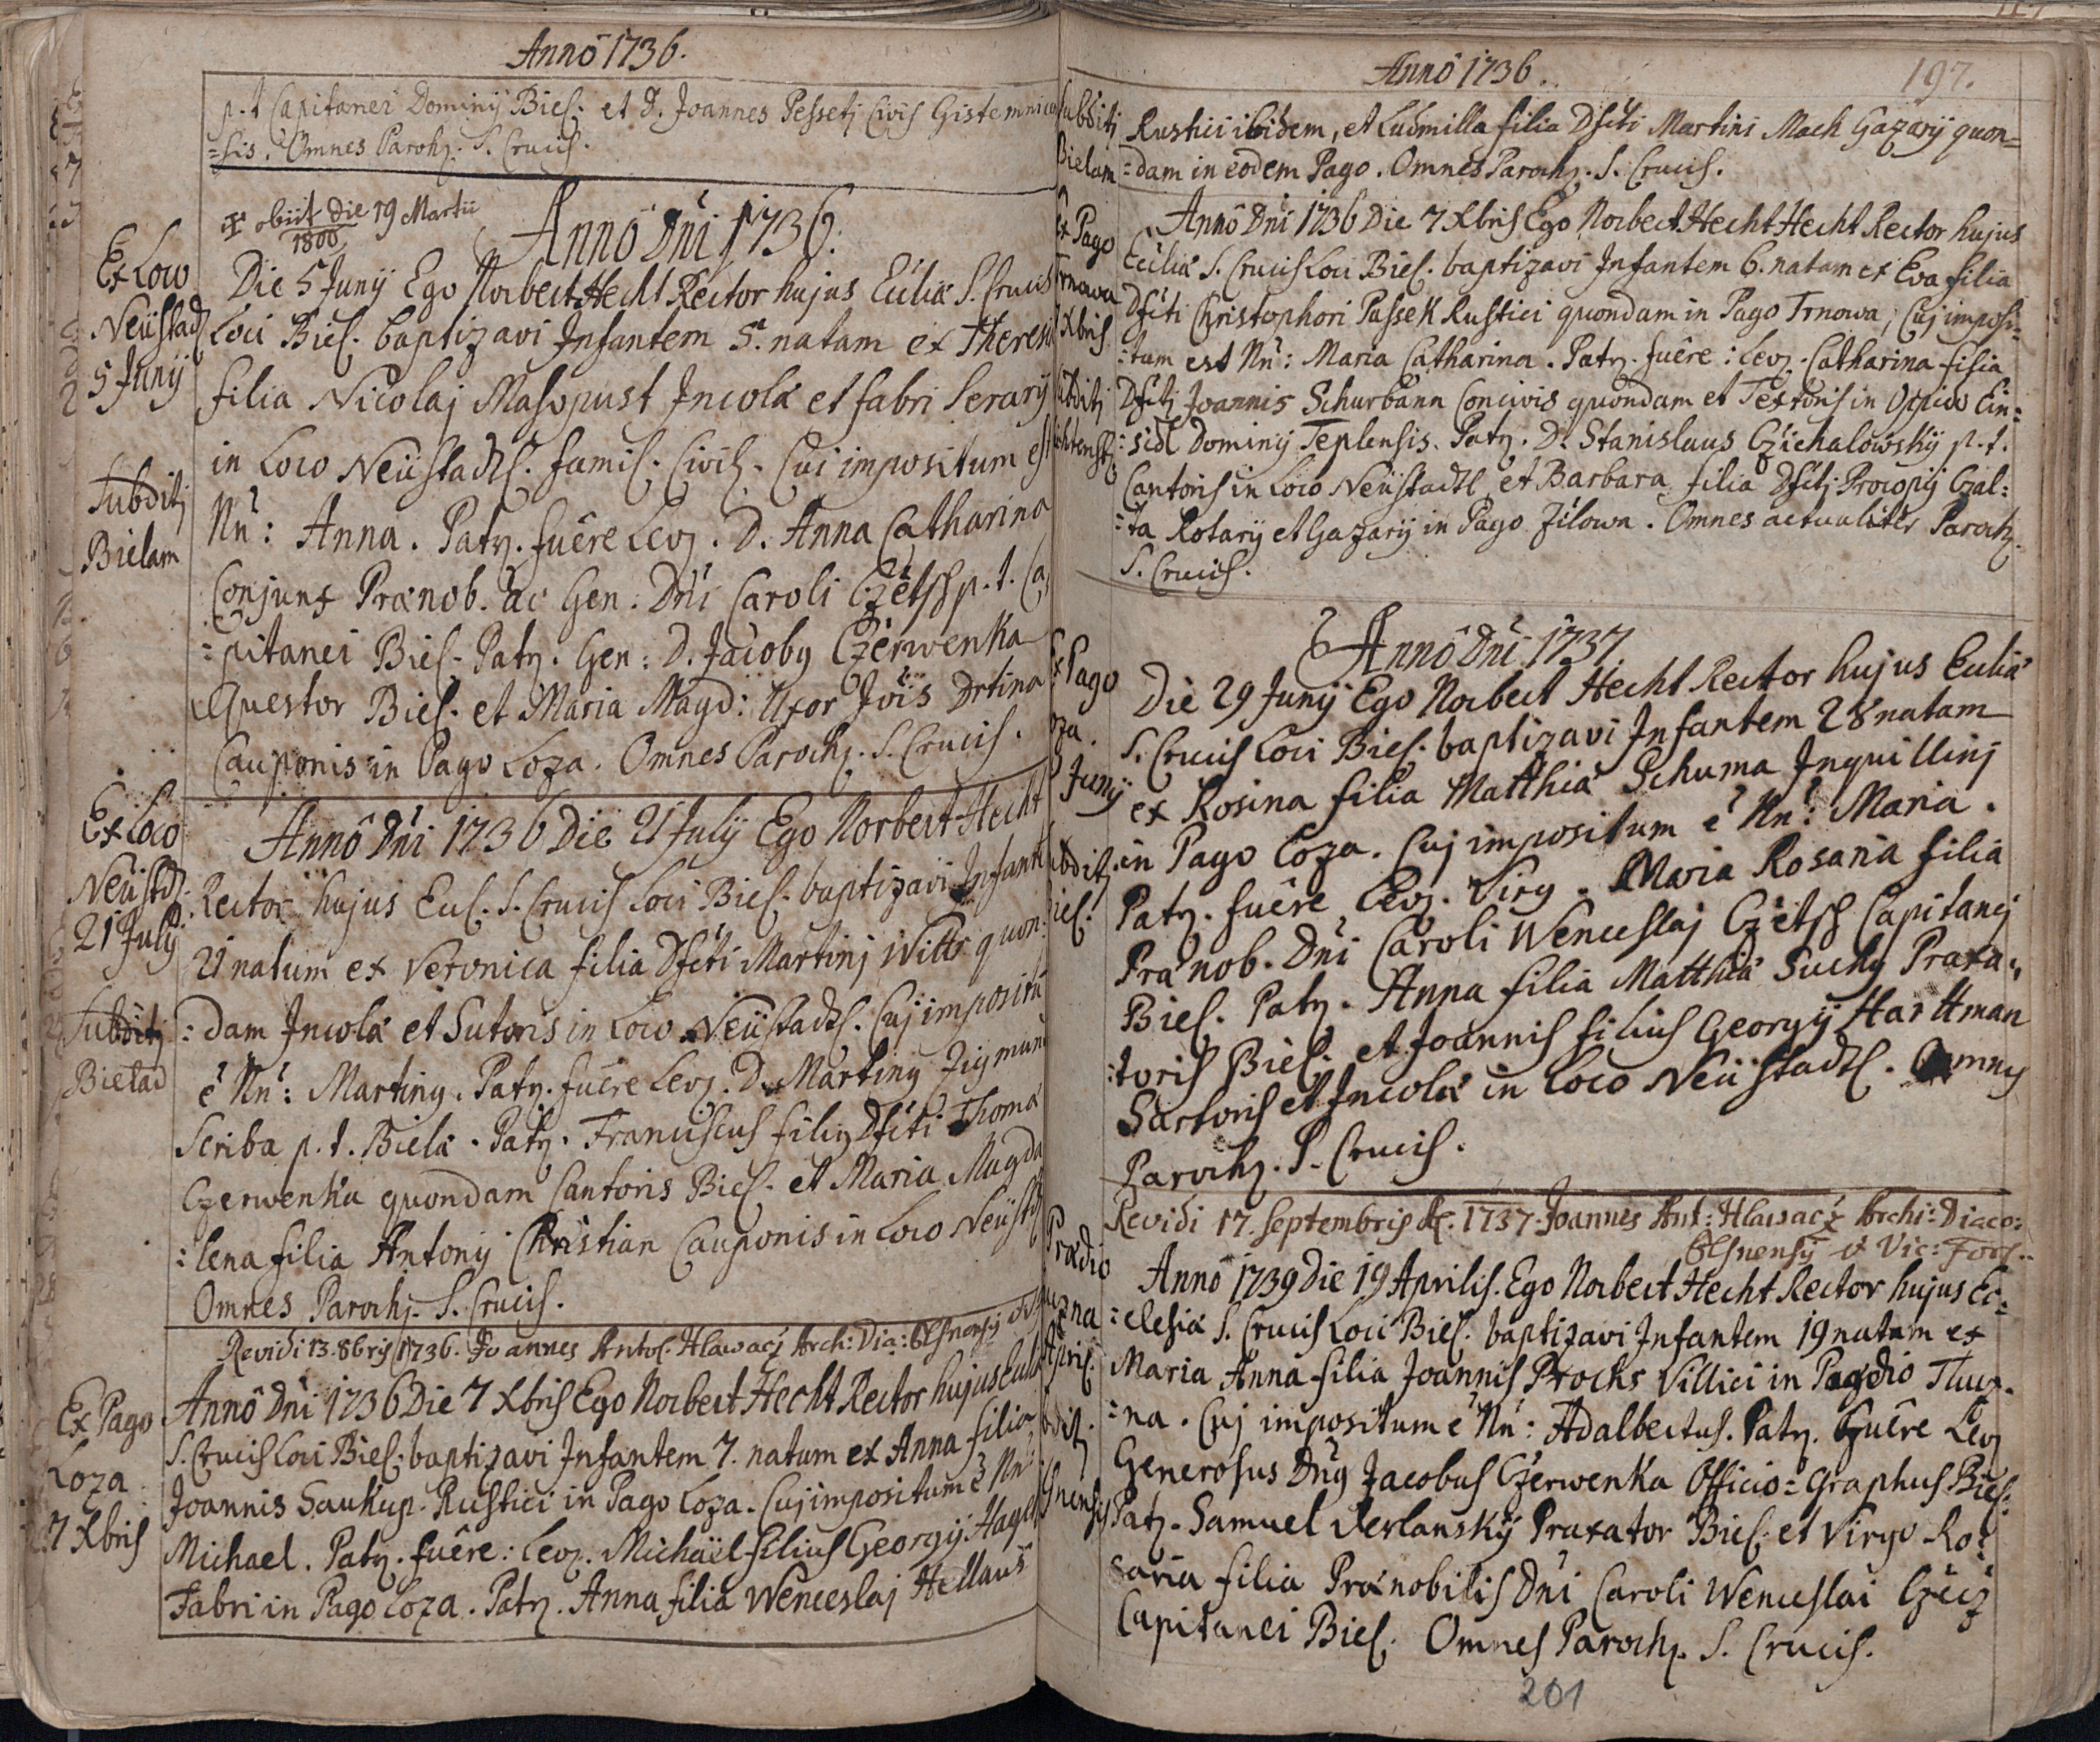 Anno 1736.
p.t Capitanei Dominÿ Biel: et D. Joannes Pessetj Civis Gistemnicen
=sis. Omnes Paroh. S. Crucis.
obiit die 19 Martii
1800
Anno Dni 1736.
Ex Loco
Neüstadl
5 Junÿ
Subditj
Bielam
Die 5 Junÿ Ego Norbert Hecht Rector hujus Ecclia S. Crucis
Loci Biel. baptizavi Infantem 5. natam ex Theresia
filia Nicolaj Masopust Incolæ et fabri Serarÿ
in Loco Neüstadtl. famil. Civil. Cui impositum est
Nn: Anna. Patr. fuêre Lev. D. Anna Catharina
Conjunx Prænob. ac Gen. Dni Caroli Czetsch p.t. Ca
=pitanei Biel. Patr. Gen: D. Jacobg Czerwenka
Quæstor Biel. et Maria Magd: Uxor Jois Drtina
Cauponis in Pago Loza. Omnes Paroch. S. Crucis.
Ex Loco
Neüstdl.
21 Julÿ
Subditg
Bielad
Anno Dni 1736 Die 21 Julÿ Ego Norbert Hecht
Rector hujus Eccl. S. Crucis Loci Biel. baptizavi Infante
21 natum ex Veronica filia Dfcti Martinj Witts quon:
:dam Incolæ et Sutoris in Loco Neüstadtl. Cuj impositu
e Nn: Marting. Patr. fuêre Lev. D. Marting Zigmund
Scriba p.t. Biela. Patr. Franciscus filig Dfcti Thomæ
Czerwenka quondam Cantoris Biel. et Maria Magda
:lena filia Antonÿ Christian Cauponis in Loco Neüstdl
Omnes Paroch. S. Crucis.
Revidi 13. 8bris 1736. Joannes Antol. Hlawacz Arch: Dia:
Ex Pago
Loza
7 Xbris
Anno Dni 1736 Die 7 Xbris Ego Norbert Hecht Rector hujus Ecclia
S. Crucis Loci Biel: baptizavi Infantem 7. natum ex Anna filia
Joannis Saukup. Rustici in Pago Loza. Cuj impositum e Nn:
Michael. Patr. fuêre: Lev. Michäel filius Georgÿ Hagek
Fabri in Pago Loza. Patr. Anna filia Wenceslaj Hellaus
Anno 1736.
197.
Subditj
Bielam
Rustici ibidem, et Ludmilla filia Dfcti Martini Mach Gazarÿ quon=
=dam in eodem Pago. Omnes Paroch. S. Crucis.
Ex Pago
Trnowa
Xbris
Anno Dni 1736 Die 7 Xbris Ego Norbert Hecht Hecht Rector hujus
Ecclia S. Crucis Loci Biel. baptizavi Infantem 6. natam ex Eva filia
Dfcti Christophori Passek Rustici quondam in Pago Trnowa; Cuj imposi=
:tum est Nn: Maria Catharina. Patr. fuêre: Lev. Catharina filia
Dfctj Joannis Schurbann Concivis quondam et Textoris in Oppido Ein=
:sidl Dominÿ Teplensis. Patr. D. Stanislaus Czichalowskÿ p.t.
Cantoris in Loco Neüstadtl et Barbara filia Dfctj Procopÿ Czal=
=ta Rotarÿ et Gazarÿ in Pago Zilowa. Omnes actualiter Paroch.
S. Crucis.
Anno Dni 1737
Ex Pago
oza.
Junÿ
ubditj
iel.
Die 29 Junÿ Ego Norbert Hecht Rector hujus Ecclia
S. Crucis Loci Biel. baptizavi Infantem 28 natam
ex Rosina filia Matthiæ Schuma Inquillinj
in Pago Loza. Cuj impositum e Nn: Maria.
Patr. fuêre Lev. Virg. Maria Rosaria filia
Prænob. Dni Caroli Wenceslaj Czetsch Capitanej
Biel. Patr. Anna filia Matthiæ Suchy Praxa=
:toris Biel. et Joannis filius Georgÿ Harttman
Sartoris et Incolæ in Loco Neüstadtl. Omneg
Paroch. S. Crucis.
Revidi 17. Septembris A. 1737. Joannes Ant: Hlawacz Archi: Diaco=
Plsnensÿ et Vic: For.
Prædio
zna
Apris.
bditj
snensis
Anno 1739 Die 19 Aprilis. Ego Norbert Hecht Rector hujus Ec=
:clesiæ S. Crucis Loci Biel. baptizavi Infantem 19 natum ex
Maria Anna filia Joannis Prochs Villici in Prædio Tlucz.
=na. Cuj impositum e Nn: Adalbertus. Patr. fuêre Lev
Generosus Dng Jacobus Czerwenka Officio=Graphus Biel.
Patr. Samuel Verlanskÿ Praxator Biel: et Virgo Ro:
saria filia Prænobilis Dni Caroli Wenceslai Czecz
Capitanei Biel. Omnes Paroch. S. Crucis.
201